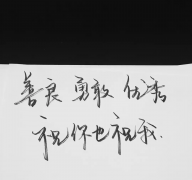 善良 勇敢 优秀
祝你也祝我.